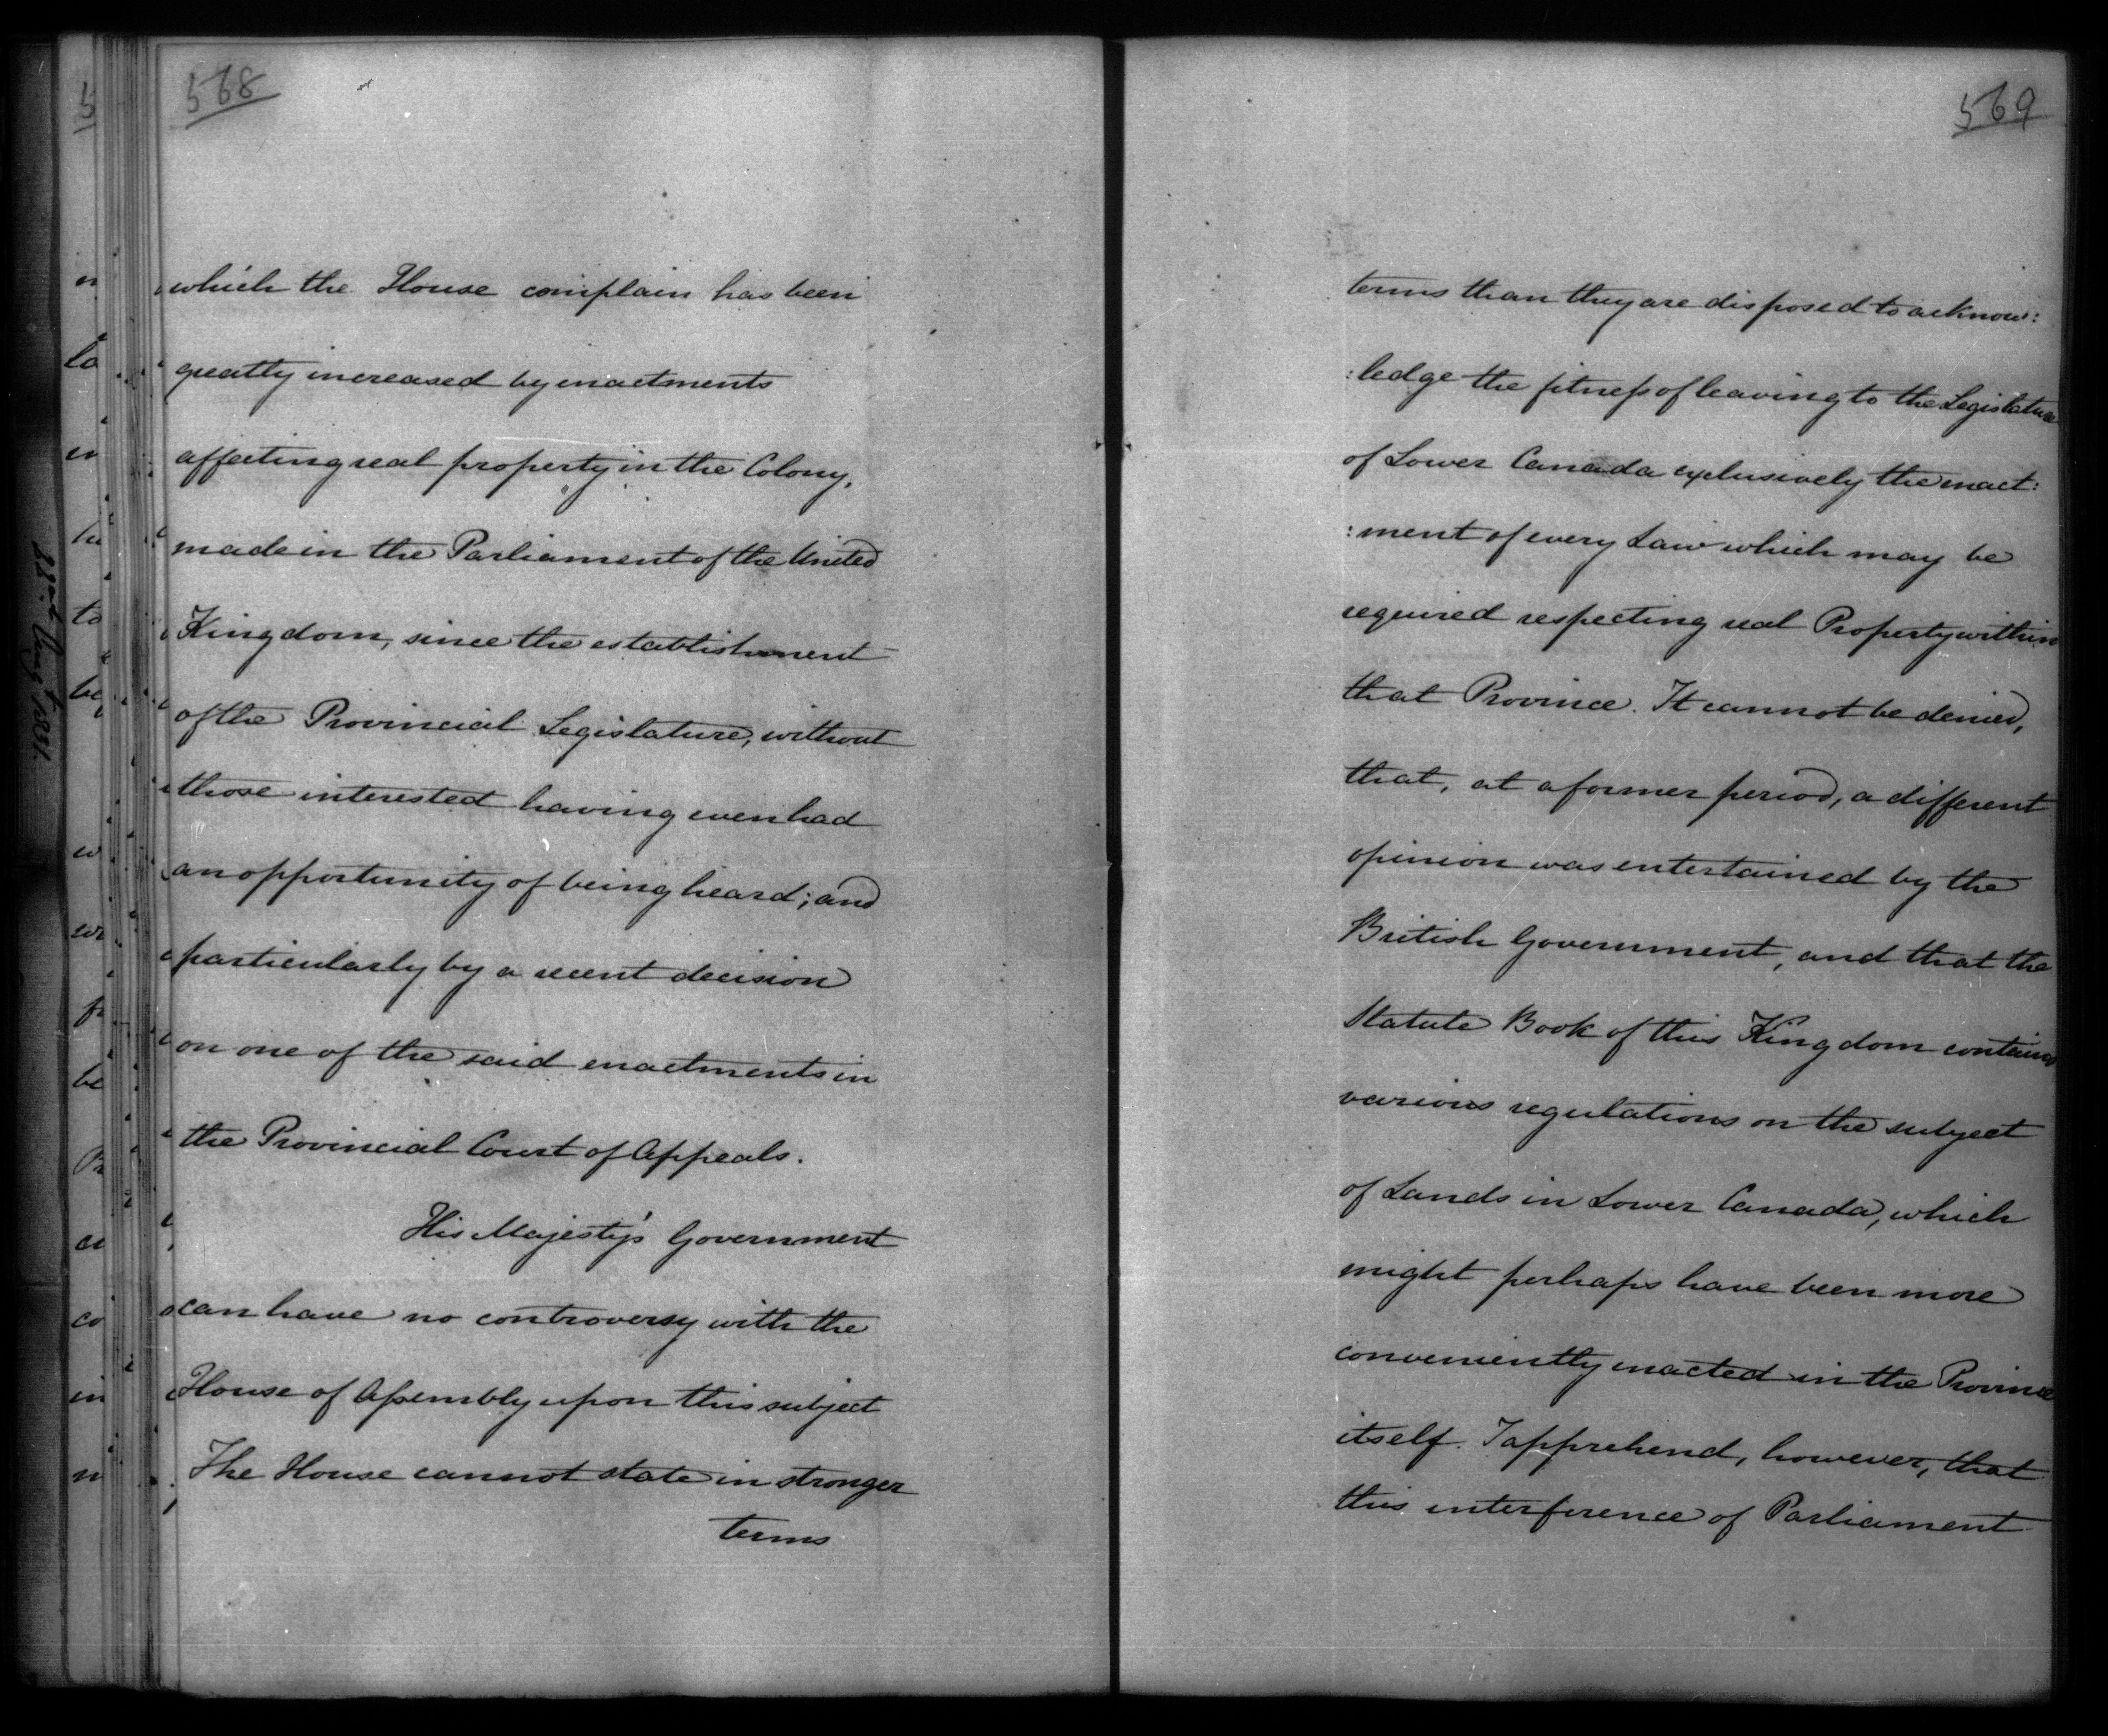 568
which the House complain has been
greatly increased by enactments
affecting real property in the Colony,
made in the Parliament of the United
Kingdom, since the establishment
of the Provincial Legislature, without
those interested having even had
an opportunity of being heard; and
particularly by a recent decision
on one of the said enactments in
the Provincial Court of Appeals.
His Majesty's Government
can have no controversy with the
House of Assembly upon this subject
The House cannot state in stronger
terms
569
terms than they are disposed to acknow:
:ledge the fitness of leaving to the Legislature
of Lower Canada exclusively the enact:
:ment of every Law which may be
required respecting real Property within
that Province. It cannot be denied,
that, at a former period, a different
opinion was entertained by the
British Government, and that the
Statute Book of this Kingdom contains
various regulations on the subject
of Lands in Lower Canada, which
might perhaps have been more
conveniently enacted in the Province
itself. I apprehend, however, that
this interference of Parliament